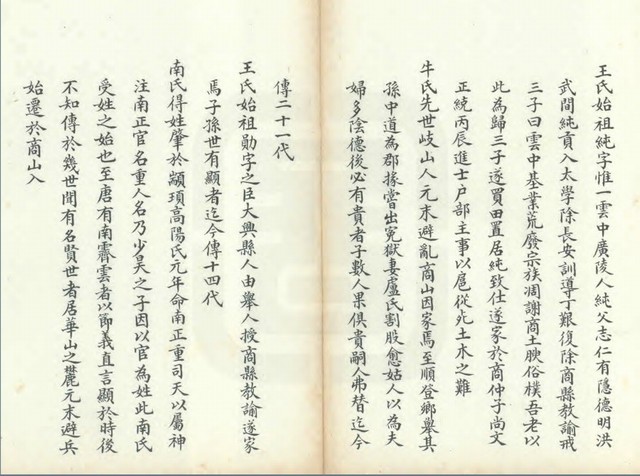 王氏始祖純字惟一雲中廣陵人純父志仁有隱德明洪
武間純貢入太學除長安訓導丁艱復除商縣教諭戒
三子曰雲中基業荒廢宗族凋謝商土腴俗樸吾老以
此為歸三子遂買田置居純致仕遂家於商仲子尚文
正統丙辰進士戶部主事以扈從死土木之難
牛氏先世岐山人元末避亂商山因家焉至順登鄉舉其
孫中道為郡掾嘗出冤獄妻盧氏割股愈姑人以為夫
婦多陰德後必有貴者子數人果俱貴嗣人弗替迄今
傳二十一代
王氏始祖勛字之臣大興縣人由舉人授商縣教諭遂家
焉子孫世有顯者迄今傳十四代
南氏得姓肇於顓頊高陽氏元年命南正重司天以屬神
注南正官名重人名乃少昊之子因以官為姓此南氏
受姓之始也至唐有南霽雲者以節義直言顯於時後
不知傳於幾世間有名賢世者居華山之麓元末避兵
始遷於商山入